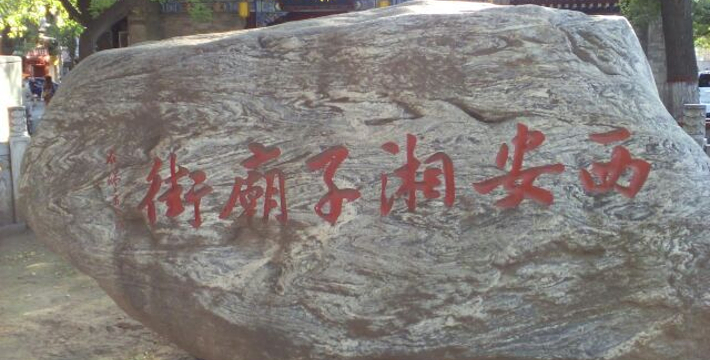 西安湘子廟街